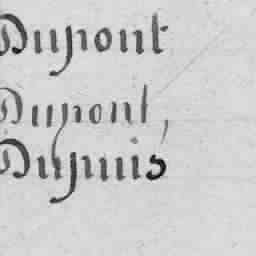 Dupont
Dupont,
Dupuis